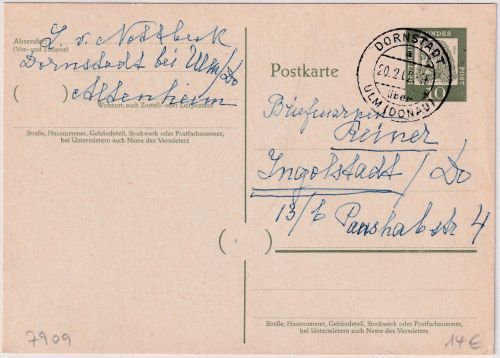 Absender:
(Vor- und Zuname)
L. v. Nottbeck
Dornstadt bei Ulm/Do
( ) Altenheim
Wohnort, auch Zustell- oder Leitpostamt
Straße, Hausnummer, Gebäudeteil, Stockwerk oder Postfachnummer,
bei Untermietern auch Name des Vermieters
DORNSTADT
a
20.2.
über
ULM (DONAU)
BUNDES
POST
10
Postkarte
Reiner
Ingolstadt/Do
13/b 4
( )
Straße, Hausnummer, Gebäudeteil, Stockwerk oder Postfachnummer,
bei Untermietern auch Name des Vermieters
7909
14€